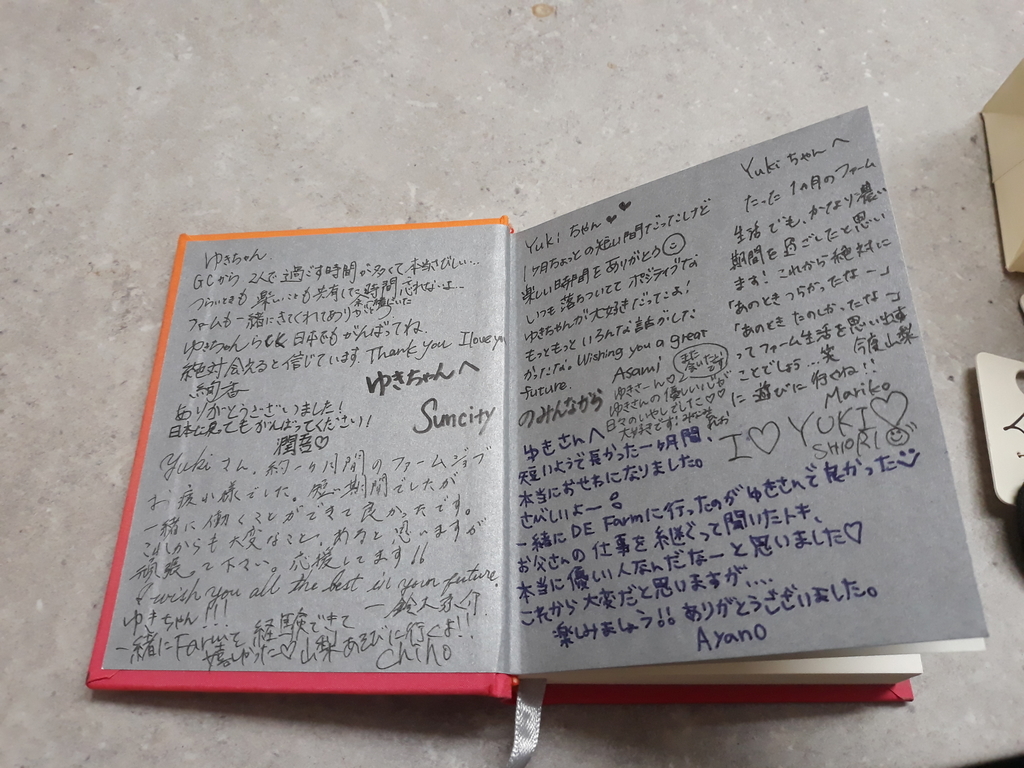 ゆきちゃん
GCから2人で過ごす時間が多くて本当さびしい…
つらいときも楽しいことも共有した時間忘れないよ…
ファームも一緒にきてくれてありがとう
ゆきちゃんらしく日本でもがんばってね。
絶対会えると信じています。Thank you I love you
絢香
ありがとうございました!
日本に戻ってもがんばってください!
潤吾♡
ゆきちゃんへ
Suncity
のみんなから
Yukiさん。約一ヶ月間のファームジョブ
お疲れ様でした。短い期間でしたが
一緒に働くことができて良かったです。
これからも大変なこと、あると思いますが
頑張って下さい。応援してます!!
I wish you all the best in your future.
ゆきちゃん!!!
一緒にFarmを経験できて
嬉しかった♡山梨あそびに行くよ!!
Chiho
Yukiちゃん♥♥
1ヶ月ちょっとの短い間だったけど
楽しい時間をありがとう
いつも落ちついててポジティブな
ゆきちゃんが大好きだったよ!
もっともっといろんな話がした
かったな。Wishing you a great
future.
Asami
また会いたいです
ゆきさーん♡
ゆきさんの優しいしが
日々のいやしでした♡♡
大好きです!
Yukiちゃんへ
たった1ヵ月のファーム
生活でも、かなり濃い
期間を過ごしたと思い
ます!これから絶対に
「あのときつらかったなー」
「あのときたのしかったなー」
ってファーム生活を思い出す
ことでしょう…笑 今度山梨
に遊びに行くね!!
Mariko
I♡YUKI♡
SHIORI
ゆきさんへ
短いようで長かった一ヶ月間、
本当におせちになりました。
さびしいよー
一緒にDE Farmに行ったのがゆきさんで良かった
お父さんの仕事を継ぐって聞いたトキ、
本当に優しい人なんだなーと思いました♡
これから大変だと思いますが….
楽しみましょう!!ありがとうございました。
Ayano